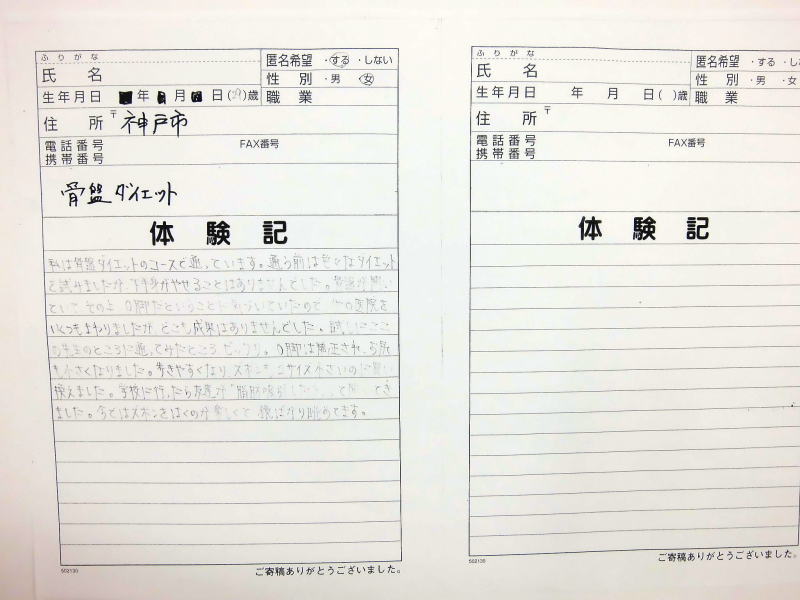 ふりがな
氏名
匿名希望 ・する ・しない
性別 ・男 ・女
生年月日 年 月 日 ( )歳
職業
住所 〒 神戸市
電話番号 FAX番号
携帯番号
骨盤ダイエット
体験記
私は骨盤ダイエットのコースで通っています。通う前は色々なダイエット
を試みましたが、下半身がやせることはありませんでした。骨盤が開い
ていて そのよ O脚だということに気づいていたので 他の医院を
いくつもまわりましたが、どこも成果はありませんでした。試しにここ
の先生のところに通ってみたところ ビックリ。O脚は矯正され、お尻
も小さくなりました。歩きやすくなり、ズボンも 2サイズ小さいのに買い
換えました。学校に行ったら友達が"脂肪吸引したの
ました。今ではズボンをはくのが楽しくて 鏡ばかり眺めてます。
502130
ご寄稿ありがとうございました。
ふりがな
氏名
匿名希望 ・する ・し
性別 ・男 ・女
生年月日 年 月 日 ( )歳
職業
住所 〒
電話番号 FAX番号
携帯番号
体験記
502130
ご寄稿ありがとうございました。